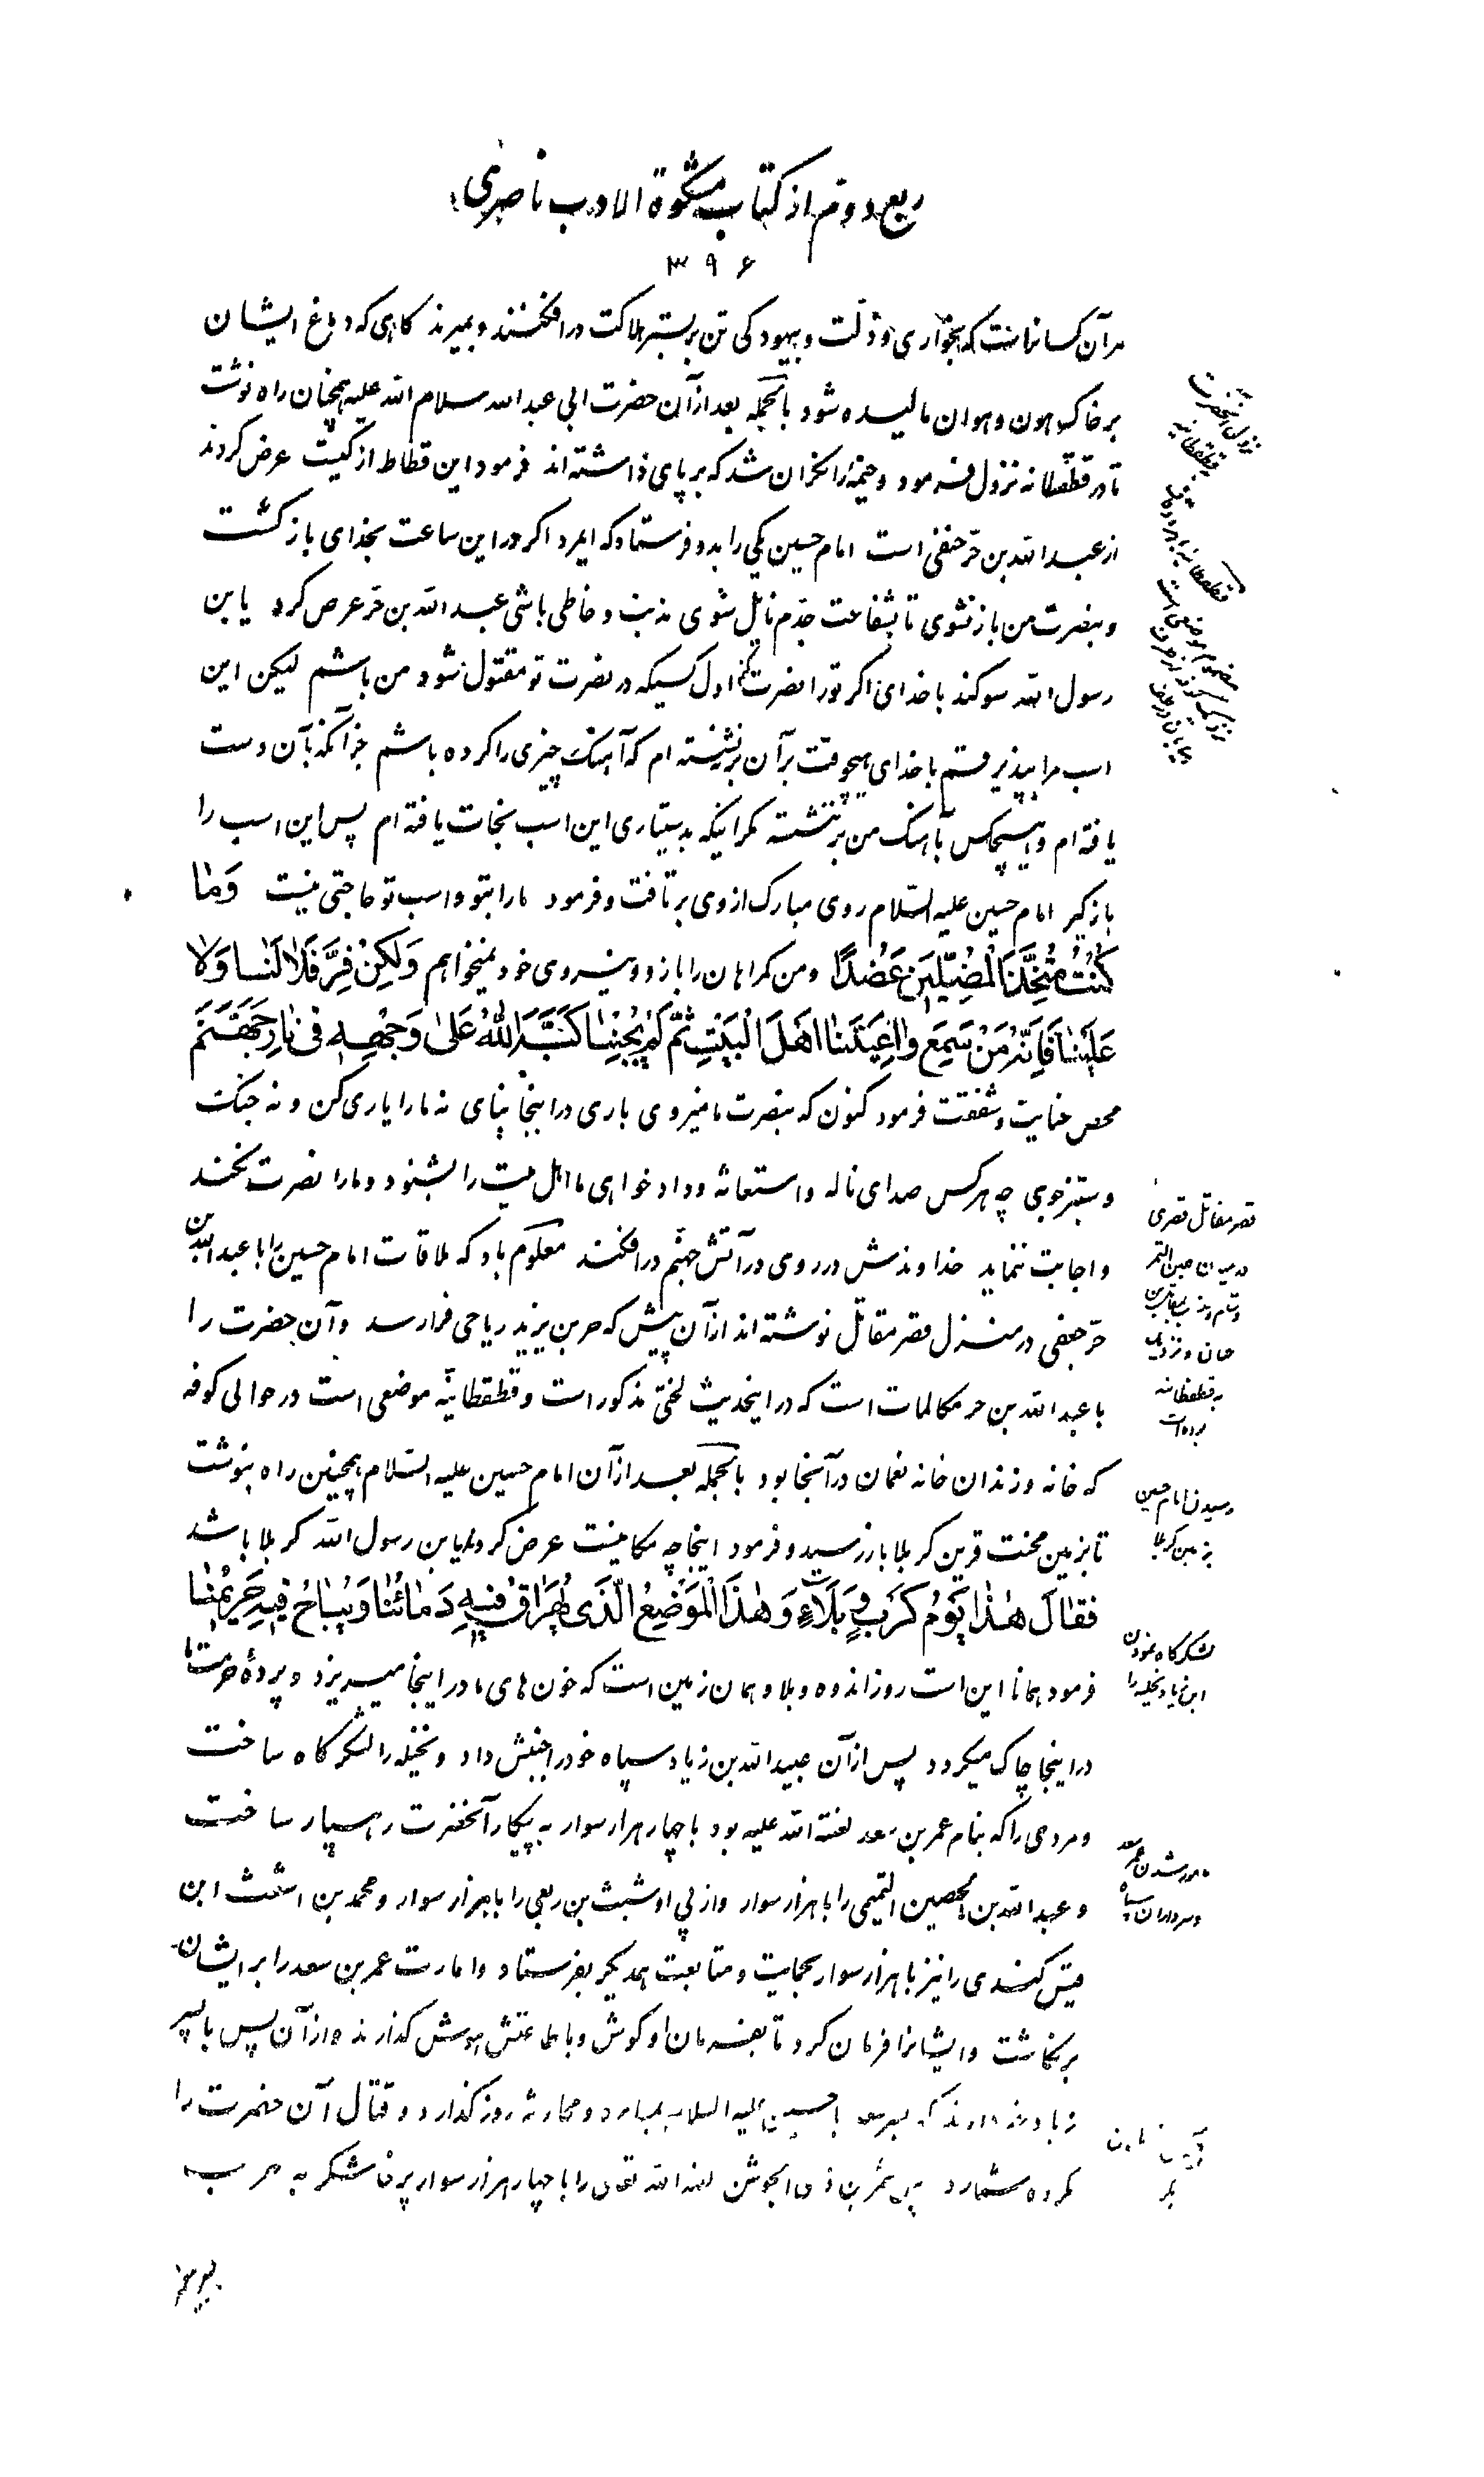 ربع دوم از کتاب مشکوة الادب ناصری
۳۹۶
مر آن کسانراست که بخواری و ذلت و بیهودگی تن بر بستر هلاکت درافکنند و بمیرند گاهی که دماغ ایشان
بر خاک هون و هوان مالیده شود بالجمله بعد از آن حضرت ابی عبد الله سلام الله علیه همچنان راه نوشت
تا در قطقطانه نزول فرمود و خیمهٔ را نگران شد که بر پای داشته اند فرمود این قطاط از کیست عرض کردند
از عبد الله بن حر حنفی است امام حسین یکی را بدو فرستاد که ایمرد اگر در این ساعت بخدای بازگشت
و بنصرت من باز نشوی تا بشفاعت جدم نایل شوی مذنب و خاطی باشی عبد الله بن حر عرض کرد یا بن
رسول الله سوگند با خدای اگر تو را نصرت کنم اول کسیکه در نصرت تو مقتول شود من باشم لیکن این
اسب مرا بپذیر قسم با خدای هیچوقت بر آن برنشینسته ام که آهنگ چیزی را کرده باشم جز آنکه بآن دست
یافته ام و هیچکس بآهنگ من برننشسته مگر اینکه بدستیاری این اسب نجات یافته ام پس این اسب را
بازگیر امام حسین علیه السلام روی مبارک از وی برتافت و فرمود ما را بتو و اسب تو حاجتی نیست وَمٰا
كُنْتُ مُتَّخِذَ الْمُضِلّينَ عَضُدًا و من گمراهان را بازو و نیروی خود نمیخواهم وَلكِنْ فِرَّ فَلاٰ لَنٰا وَلاٰ
عَلَيْنٰا فَاِنَّهُ مَنْ سَمِعَ وٰاعِيَتَنٰا اَهْلَ الْبَيْتِ ثُمَّ لَمْ يُجِبْنٰا كَبَّهُ اللّٰهُ عَلىٰ وَجْهِهِ فى نٰارِ جَهَنَّمَ
محض عنایت و شفقت فرمود کنون که بنصرت ما نیروی باری در اینجا نپای نه ما را یاری کن و نه جنگ
و ستیز جوی چه هرکس صدای ناله و استغاثه و دادخواهی ما اهل بیت را بشنود و ما را نصرت نکند
و اجابت ننماید خداوندش در روی در آتش جهنم درافکند معلوم باد که ملاقات امام حسین را با عبد الله بن
حر جعفی در منزل قصر مقاتل نوشته اند از آن پیش که حر بن یزید ریاحی فرا رسد و آن حضرت را
با عبد الله بن حر مکالمات است که در اینحدیث لختی مذکور است و قطقطانیّه موضعی است در حوالی کوفه
که خانه و زندان خانه نعمان در آنجا بود بالجمله بعد از آن امام حسین علیه السلام همچنین راه بنوشت
تا بزمین محنت قرین کربلا باز رسید و فرمود اینجا چه مکانیست عرض کردند یا بن رسول الله کربلا باشد
فَقٰالَ هٰذٰا يَوْمُ كَرْبٍ وَ بَلَاۤءٍ وَ هٰذَا الْمَوْضِعُ الَّذى يُهْرٰاقُ فيهِ دِمٰائُنٰا وَ يُبٰاحُ فيهِ حَريمُنٰا
فرمود همانا این است روز اندوه و بلا و همان زمین است که خون های ما در اینجا میریزد و پردهٔ حرمت ما
در اینجا چاک میگردد پس از آن عبید الله بن زیاد سپاه خود را جنبش داد و نخیله را لشکرگاه ساخت
و مردی را که بنام عمر بن سعد لعنة الله علیه بود با چهار هزار سوار به پیکار آنحضرت رهسپار ساخت
و عبد الله بن الحصین التمیمی را با هزار سوار و از پی او شبث بن ربعی را با هزار سوار و محمد بن اشعث ابن
قیس کندی را نیز با هزار سوار بحمایت و متابعت همدیگر بفرستاد و امارت عمر بن سعد را بر ایشان
برنگاشت و ایشانرا فرمان کرد تا بفرمان او گوش و باطاعتش هوش گذارند و از آن پس با پسر
زیاد خبر دادند که پسر سعد با حسین علیه السلام بمسامره و محادثه روز گذارد و قتال آن حضرت را
مکروه شمارد پس شمر بن ذی الجوشن لعنه الله تعالی را با چهار هزار سوار پرخاشگر به حرب
نزول آنحضرت
در قطقطانیه
قصر مقاتل قصری
در میان عین التمر
و شام
به قطقطانه
بوده است
رسیدن امام حسین
بزمین کربلا
لشکرگاه نمودن
ابن زیاد نخیله را
مامور شدن عمر سعد
و سرداران سپاه